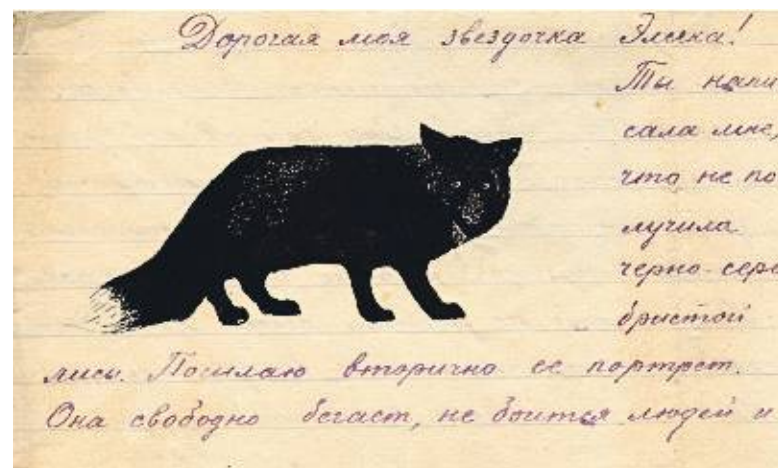 Дорогая моя звездочка Элика!
Ты напи
сала мне,
что не по
лучила
черно-сере
бристой
лисы. Посылаю вторично ее портрет.
Она свободно бегает, не боится людей и